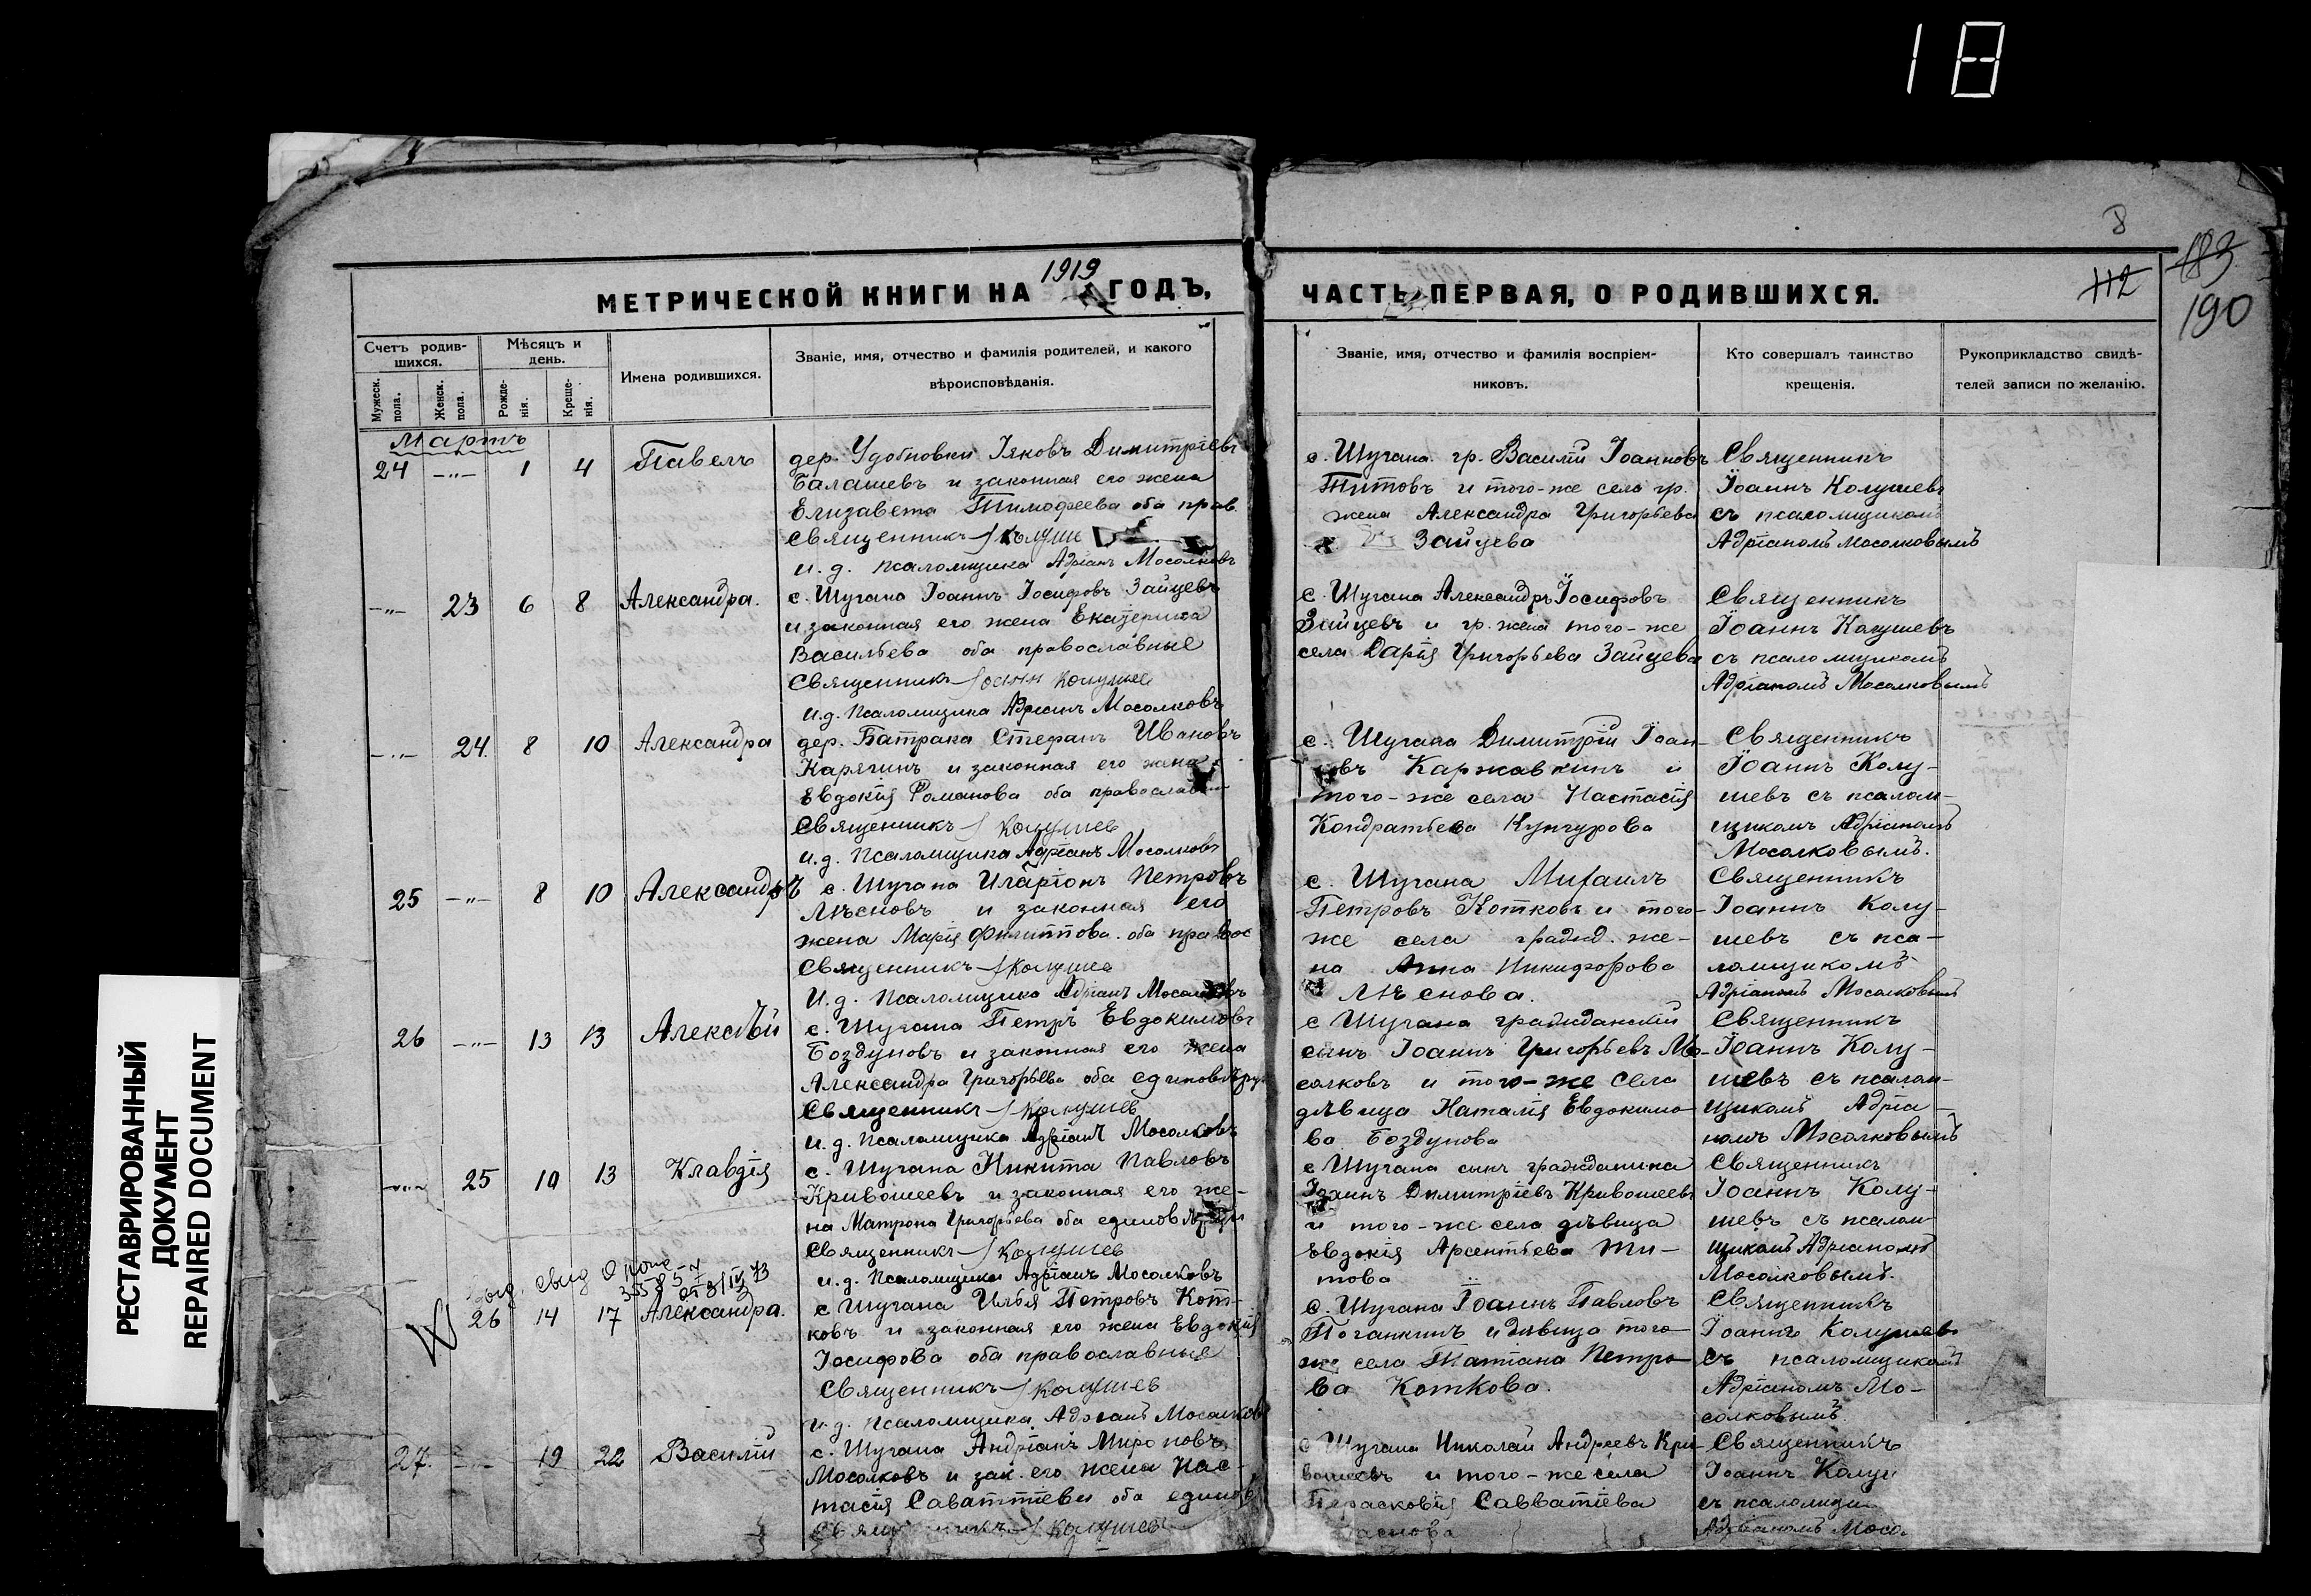 18
8
183
112
190
РЕСТАВРИРОВАННЫЙ
ДОКУМЕНТ
REPAIRED DOCUMENT
1919
МЕТРИЧЕСКОЙ КНИГИ НА ГОДЪ,
ЧАСТЬ ПЕРВАЯ, О РОДИВШИХСЯ.
Счетъ родив-
шихся.
Мужеск.
пола.
Женск.
пола.
Мѣсяцъ и
день.
Рожде-
нія.
Креще-
нія.
Имена родившихся.
Званіе, имя, отчество и фамилія родителей, и какого
вѣроисповѣданія.
Званіе, имя, отчество и фамилія воспріем-
никовъ.
Кто совершалъ таинство
крещенія.
Рукоприкладство свидѣ-
телей записи по желанію.
Мартъ
24 -"- 1 4 Павелъ
дер. Удобновки Іяковъ Димитріевъ
Балашевъ и законная его жена
Елизавета Тимофеева оба прав.
Священникъ
и.д. псаломщика Адріанъ Мосолковъ
с. Шугана гр. Василій Іоанновъ
Титовъ и того-же села гр.
жена Александра Григорьева
Зайцева
Священникъ
Іоаннъ Колушевъ
съ псаломщикомъ
Адріаномъ Мосолковымъ
-"- 23 6 8 Александра.
с. Шугана Іоаннъ Іосифовъ Зайцевъ
и законная его жена Екатерина
Васильева оба православные
Священникъ Іоанн Колушев
и.д. псаломщика Адріанъ Мосолковъ
с. Шугана Александръ Іосифовъ
Зайцевъ и гр. жена того-же
села Дарія Григорьева Зайцева
Священникъ
Іоаннъ Колушевъ
съ псаломщикомъ
Адріаномъ Мосолковымъ
-"- 24. 8 10 Александра
дер. Батрака Стефанъ Ивановъ
Карягинъ и законная его жена
Евдокія Романова оба православн
Священникъ Колушев
и.д. псаломщика Адріанъ Мосолковъ
с. Шугана Димитрій Іоан-
овъ Каржавкинъ и
того-же села Настасія
Кондратьева Кунгурова
Священникъ
Іоаннъ Колу-
шевъ съ псалом-
щикомъ Адріаномъ
Мосолковымъ.
25 -"- 8 10 Александръ
с. Шугана Иларіонъ Петровъ
Лѣсновъ и законная его
жена Марія Филиппова оба правос
Священникъ Колушев
и.д. псаломщика Адріанъ Мосолковъ
с. Шугана Михаилъ
Петровъ Котковъ и того-
же села гражд. же-
на Анна Никифорова
Лѣснова.
Священникъ
Іоаннъ Колу-
шевъ съ пса-
ломщикомъ
Адріаномъ Мосолковымъ
26 -"- 13 13 Алексѣй
с. Шугана Петръ Евдокимовъ
Боздуновъ и законная его жена
Александра Григорьева оба единовѣрц
Священникъ Колушев
и.д. псаломщика Адріанъ Мосолковъ
с Шугана гражданскій
сынъ Іоаннъ Григорьевъ Мо-
солковъ и того-же села
дѣвица Наталія Евдокимо-
ва Боздунова
Священникъ
Іоаннъ Колу-
шевъ съ псалом-
щикомъ Адріа-
номъ Мосолковымъ
-"- 25 10 13 Клавдія
с. Шугана Никита Павловъ
Кривошеевъ и законная его же-
на Матрона Григорьева оба единовѣрцы
Священникъ Колушев
и.д. псаломщика Адріанъ Мосолковъ
с Шугана сынъ гражданина
Іоаннъ Димитріевъ Кривошеевъ
и того-же села дѣвица
Евдокія Арсентьева Ти-
това
Священникъ
Іоаннъ Колу-
шевъ съ псалом-
щикомъ Адріаномъ
Мосолковымъ.
26 14 17 Александра.
с Шугана Илья Петровъ Кот-
ковъ и законная его жена Евдокія
Іосифова оба православные
Священникъ Колушев
и.д. псаломщика Адріанъ Мосолковъ
с. Шугана Іоаннъ Павловъ
Поганкинъ и дѣвица того-
же села Татіана Петро-
ва Коткова.
Священникъ
Іоаннъ Колушевъ
съ псаломщикомъ
Адріаномъ Мо-
солковымъ.
27. -"- 19 22 Василій
с. Шугана Андріанъ Мироновъ
Мосолковъ и зак. его жена Нас-
тасія Саватіева оба единов
Священникъ Колушев
с Шугана Николай Андреевъ Кри-
вошеевъ и того-же села
Парасковія Савватіева
Священникъ
Іоаннъ Колуш
съ псаломщи
Адріаномъ Мосо.